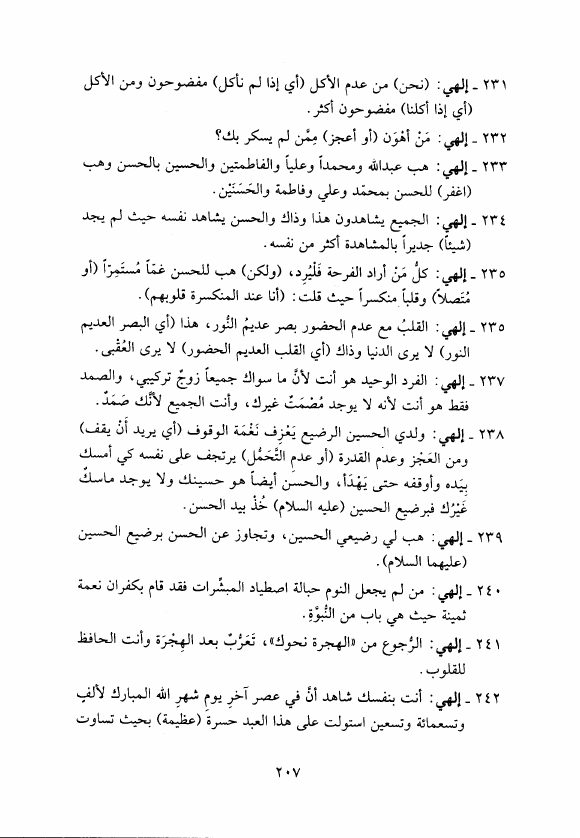 ٢٣١ ـ إلهي: (نحن) من عدم الأكل (أي إذا لم نأكل) مفضوحون ومن الأكل
(أي إذا أكلنا) مفضوحون أكثر.
٢٣٢ ـ إلهي: مَنْ أهْوَن (أو أعجز) مِمَّن لم يسكر بك؟
٢٣٣ ـ إلهي: هب عبدالله ومحمداً وعلياً والفاطمتين والحسين بالحسن وهب
(اغفر) للحسن بمحمّد وعلي وفاطمة والحَسَنَيْن.
٢٣٤ ـ إلهي: الجميع يشاهدون هذا وذاك والحسن يشاهد نفسه حيث لم يجد
(شيئاً) جديراً بالمشاهدة أكثر من نفسه.
٢٣٥ ـ إلهي: كلُّ مَنْ أراد الفرحة فَلْيُرِد، (ولكن) هب للحسن غمّاً مُستَمِرّاً (أو
مُتَصلاً) وقلباً منكسراً حيث قلت: (أنا عند المنكسرة قلوبهم).
٢٣٥ ـ إلهي: القلبُ مع عدم الحضور بصر عديمُ النُّور، هذا (أي البصر العديم
النور) لا يرى الدنيا وذاك (أي القلب العديم الحضور) لا يرى العُقْبى.
٢٣٧ ـ إلهي: الفرد الوحيد هو أنت لأنَّ ما سواك جميعاً زوجٌ تركيبي، والصمد
فقط هو أنت لأنه لا يوجد مُصْمَتٌ غيرك، وأنت الجميع لأنَّك صَمَدٌ.
٢٣٨ ـ إلهي: ولدي الحسين الرضيع يَعْزِف نَغْمَة الوقوف (أي يريد أنْ يقف)
ومن العَجْز وعدم القدرة (أو عدم التَّحَمُّل) يرتجف على نفسه كي أمسك
بِيَده وأوقفه حتى يَهْدَأ، والحسن أيضاً هو حسينك ولا يوجد ماسكٌ
غَيْرُك فبرضيع الحسين (عليه السلام) خُذْ بيد الحسن.
٢٣٩ ـ إلهي: هب لي رضيعي الحسين، وتجاوز عن الحسن برضيع الحسين
(عليهما السلام).
٢٤٠ ـ إلهي: من لم يجعل النوم حبالة اصطياد المبشِّرات فقد قام بكفران نعمة
ثمينة حيث هي باب من النُّبوَّةِ.
٢٤١ ـ إلهي: الرُّجوع من «الهجرة نحوك»، تَعَرُّبٌ بعد الهِجْرَة وأنت الحافظ
للقلوب.
٢٤٢ ـ إلهي: أنت بنفسك شاهد أنَّ في عصر آخرِ يومِ شهرِ الله المبارك لألفٍ
وتسعمائة وتسعين استولت على هذا العبد حسرة (عظيمة) بحيث تساوت
٢٠٧